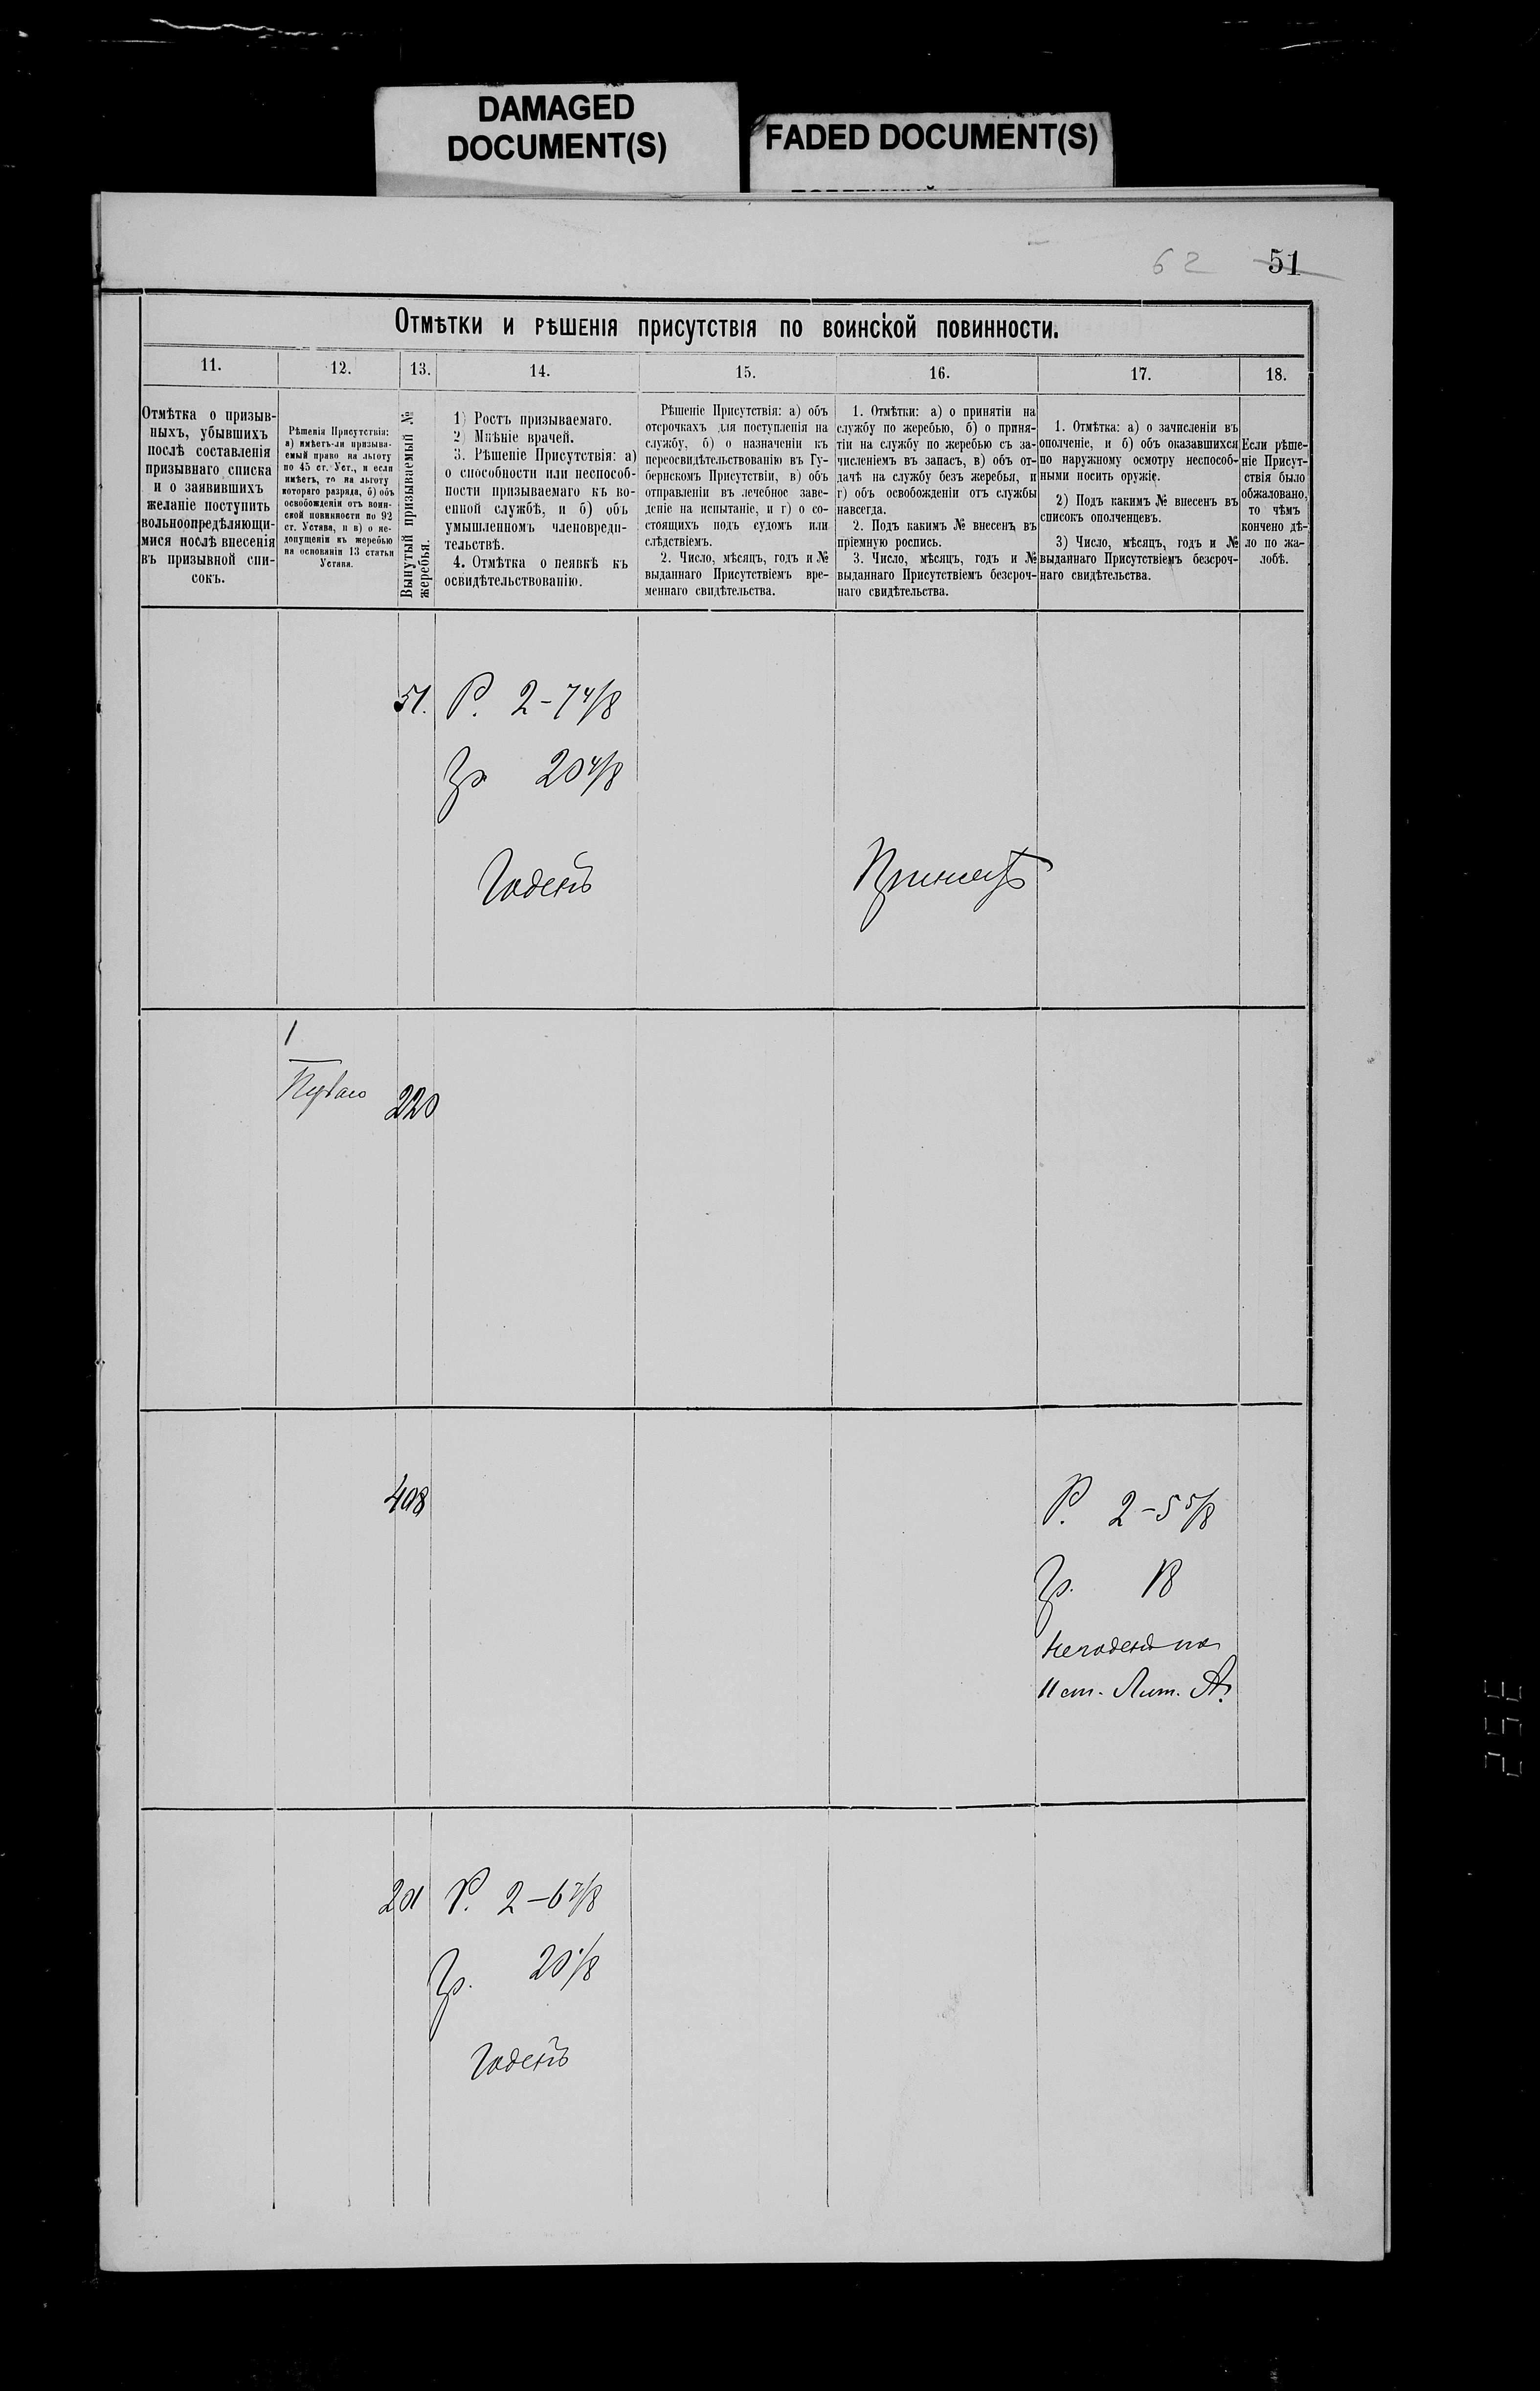 DAMAGED
DOCUMENT(S)
FADED DOCUMENT(S)
62 51
Отмѣтки и рѣшенія присутствія по воинской повинности.
11. 12. 13. 14. 15. 16. 17. 18.
Отмѣтка о призыв-
ныхъ, убывшихъ
послѣ составленія
призывнаго списка
и о заявившихъ
желаніе поступить
вольноопредѣляющи-
мися послѣ внесенія
въ призывной спи-
сокъ.
Рѣшенія Присутствія:
а) имѣетъ-ли призыва-
емый право на льготу
по 45 ст. Уст., и если
имѣетъ, то на льготу
котораго разряда, б) объ
освобожденіи отъ воин-
ской повинности по 92
ст. Устава, и в) о не-
допущеніи къ жеребью
на основаніи 13 статьи
Устава.
Вынутый призываемый №
жеребья.
1) Ростъ призываемаго.
2) Мнѣніе врачей.
3. Рѣшеніе Присутствія: а)
о способности или неспособ-
ности призываемаго къ во-
енной службѣ, и б) объ
умышленномъ членовреди-
тельствѣ.
4. Отмѣтка о неявкѣ къ
освидѣтельствованію.
Рѣшеніе Присутствія: а) объ
отсрочкахъ для поступленія на
службу, б) о назначеніи къ
переосвидѣтельствованію въ Гу-
бернскомъ Присутствіи, в) объ
отправленіи въ лечебное заве-
деніе на испытаніе, и г) о со-
стоящихъ подъ судомъ или
слѣдствіемъ.
2. Число, мѣсяцъ, годъ и №
выданнаго Присутствіемъ вре-
меннаго свидѣтельства.
1. Отмѣтки: а) о принятіи на
службу по жеребью, б) о приня-
тіи на службу по жеребью съ за-
численіемъ въ запасъ, в) объ от-
дачѣ на службу безъ жеребья, и
г) объ освобожденіи отъ службы
навсегда.
2. Подъ какимъ № внесенъ въ
пріемную роспись.
3. Число, мѣсяцъ, годъ и №
выданнаго Присутствіемъ безсроч-
наго свидѣтельства.
1. Отмѣтка: а) о зачисленіи въ
ополченіе, и б) объ оказавшихся
по наружному осмотру неспособ-
ными носить оружіе.
2) Подъ какимъ № внесенъ въ
списокъ ополченцевъ.
3) Число, мѣсяцъ, годъ и №
выданнаго Присутствіемъ безсроч-
наго свидѣтельства.
Если рѣше-
ніе Присут-
ствія было
обжаловано,
то чѣмъ
кончено дѣ-
ло по жа-
лобѣ.
51. Р. 2-7 4/8
Гр 20 4/8
Годенъ
Принятъ
1
Перваго
220
408
Р. 2-5 5/8
Гр. 18
Негоденъ по
11 ст. Лит. А.
201 Р. 2-6 7/8
Гр. 20 1/8
Годенъ
352